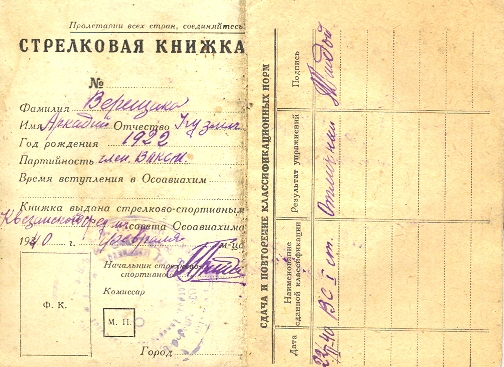 Пролетарии всех стран, соединяйтесь!
СТРЕЛКОВАЯ КНИЖКА
№
Фамилия Верещико
Имя Аркадий Отчество
Год рождения 1922
Партийность член В.Л.К.С.М.
Время вступления в Осоавиахим
Книжка выдана стрелково-спортивным
совета Осоавиахима
1940 г. февраля м-ца
Начальник стрелково-
спортивно
Комиссар
Ф. К.
М. П.
Город
СДАЧА И ПОВТОРЕНИЕ КЛАССИФИКАЦИОННЫХ НОРМ
Дата
Наименование сданной классификации
Результат упражнений
Подпись
ВС I ст.
Отличный